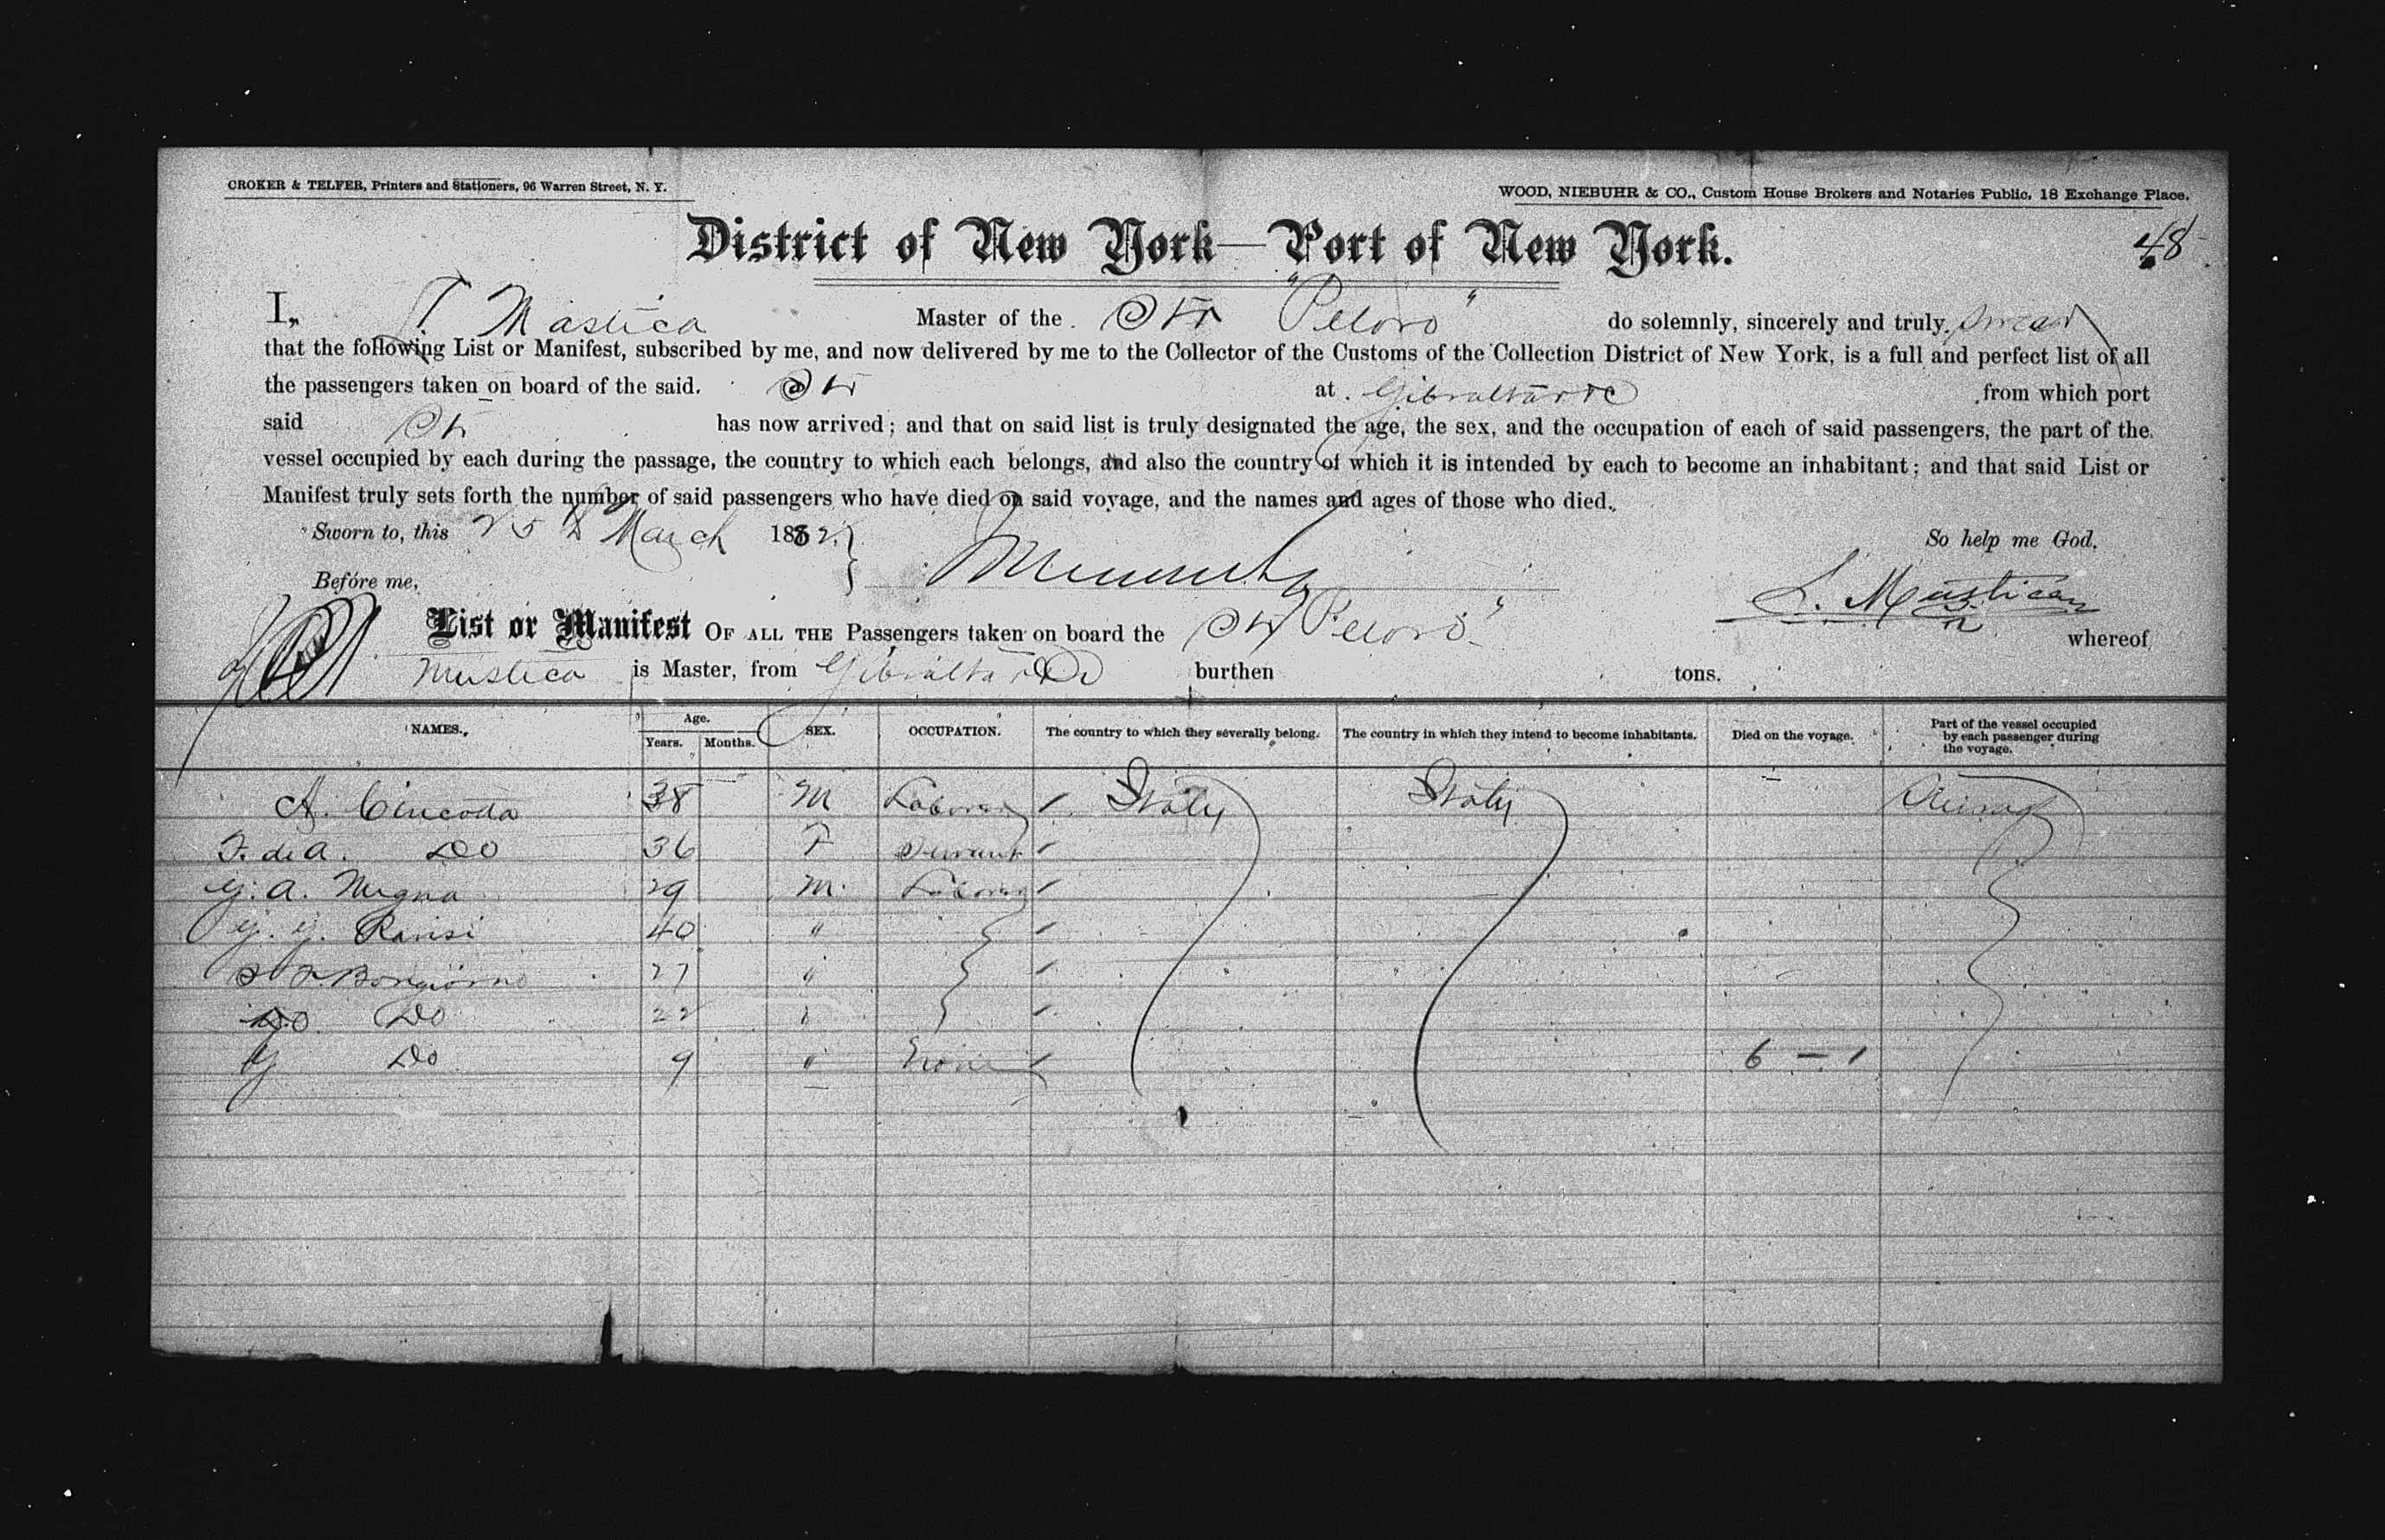 CROKER & TELFER, Printers and Stationers, 96 Warren Street, N. Y.
WOOD, NIEBUHR & CO., Custom House Brokers and Notaries Public, 18 Exchange Place.
District of New York—Port of New York.
48
I, Mastica Master of the Str "Peloro" do solemnly, sincerely and truly swear
that the following List or Manifest, subscribed by me, and now delivered by me to the Collector of the Customs of the Collection District of New York, is a full and perfect list of all
the passengers taken on board of the said Str at Gibraltar &c from which port
said Str has now arrived; and that on said list is truly designated the age, the sex, and the occupation of each of said passengers, the part of the
vessel occupied by each during the passage, the country to which each belongs, and also the country of which it is intended by each to become an inhabitant; and that said List or
Manifest truly sets forth the number of said passengers who have died on said voyage, and the names and ages of those who died.
Sworn to, this 25 March 1882. So help me God.
Before me,
L. Mustica
List or Manifest OF ALL THE Passengers taken on board the Str "Peloro" whereof
Mustica is Master, from Gibraltar burthen tons.
NAMES. Age. Years. Months. SEX. OCCUPATION. The country to which they severally belong. The country in which they intend to become inhabitants. Died on the voyage. Part of the vessel occupied by each passenger during the voyage.
A. Cincotta 38 M Laborer Italy Italy Steerage
F. di A. Do 36 F Servant
G. A. Mugna 29 M. Laborer
G. G. Ravisi 40 "
F. Bongiorno 27 "
Do Do 22 "
G Do 9 " None 6 — 1